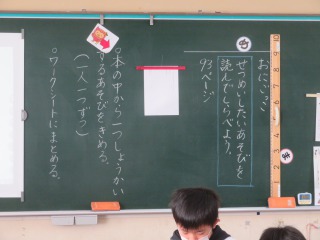 おにごっこ
せつめいしたいあそびを
読んでしらべよう。
93ページ
○本の中から一つしょうかい
するあそびをきめる。
(一人一つずつ)
○ワークシートにまとめる。